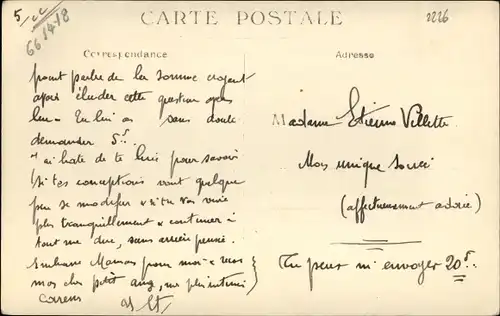 5
661478
2226
CARTE POSTALE
Correspondance
Adresse
point parler de la somme
après éluder cette question après
lui - En lui as sans doute
demander 5f.
J'ai hâte de te lire pour savoir
si tes conceptions vont quelque
peu se modifier & si tu vas vivre
plus tranquillement & continuer à
tout me dire, sans arrière pensée.
Embrasse Maman pour moi & vous
mon cher petit ang, mes plus intimes
caresses
Madame Etienne Villette
Mon unique souci
(affectueusement adorée)
Tu peux m'envoyer 20f.